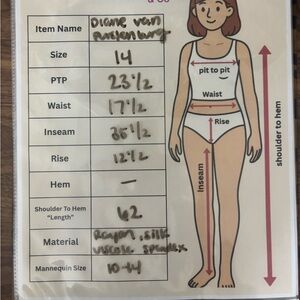 & Co
Item Name
Diane van
Furstenburg
Size
14
PTP
23 1/2
pit to pit
Waist
17 1/2
Waist
Inseam
35 1/2
Rise
Rise
12 1/2
Inseam
shoulder to hem
Hem
—
Shoulder To Hem
"Length"
62
Material
Rayon, silk
viscose spandex
Mannequin Size
10-14